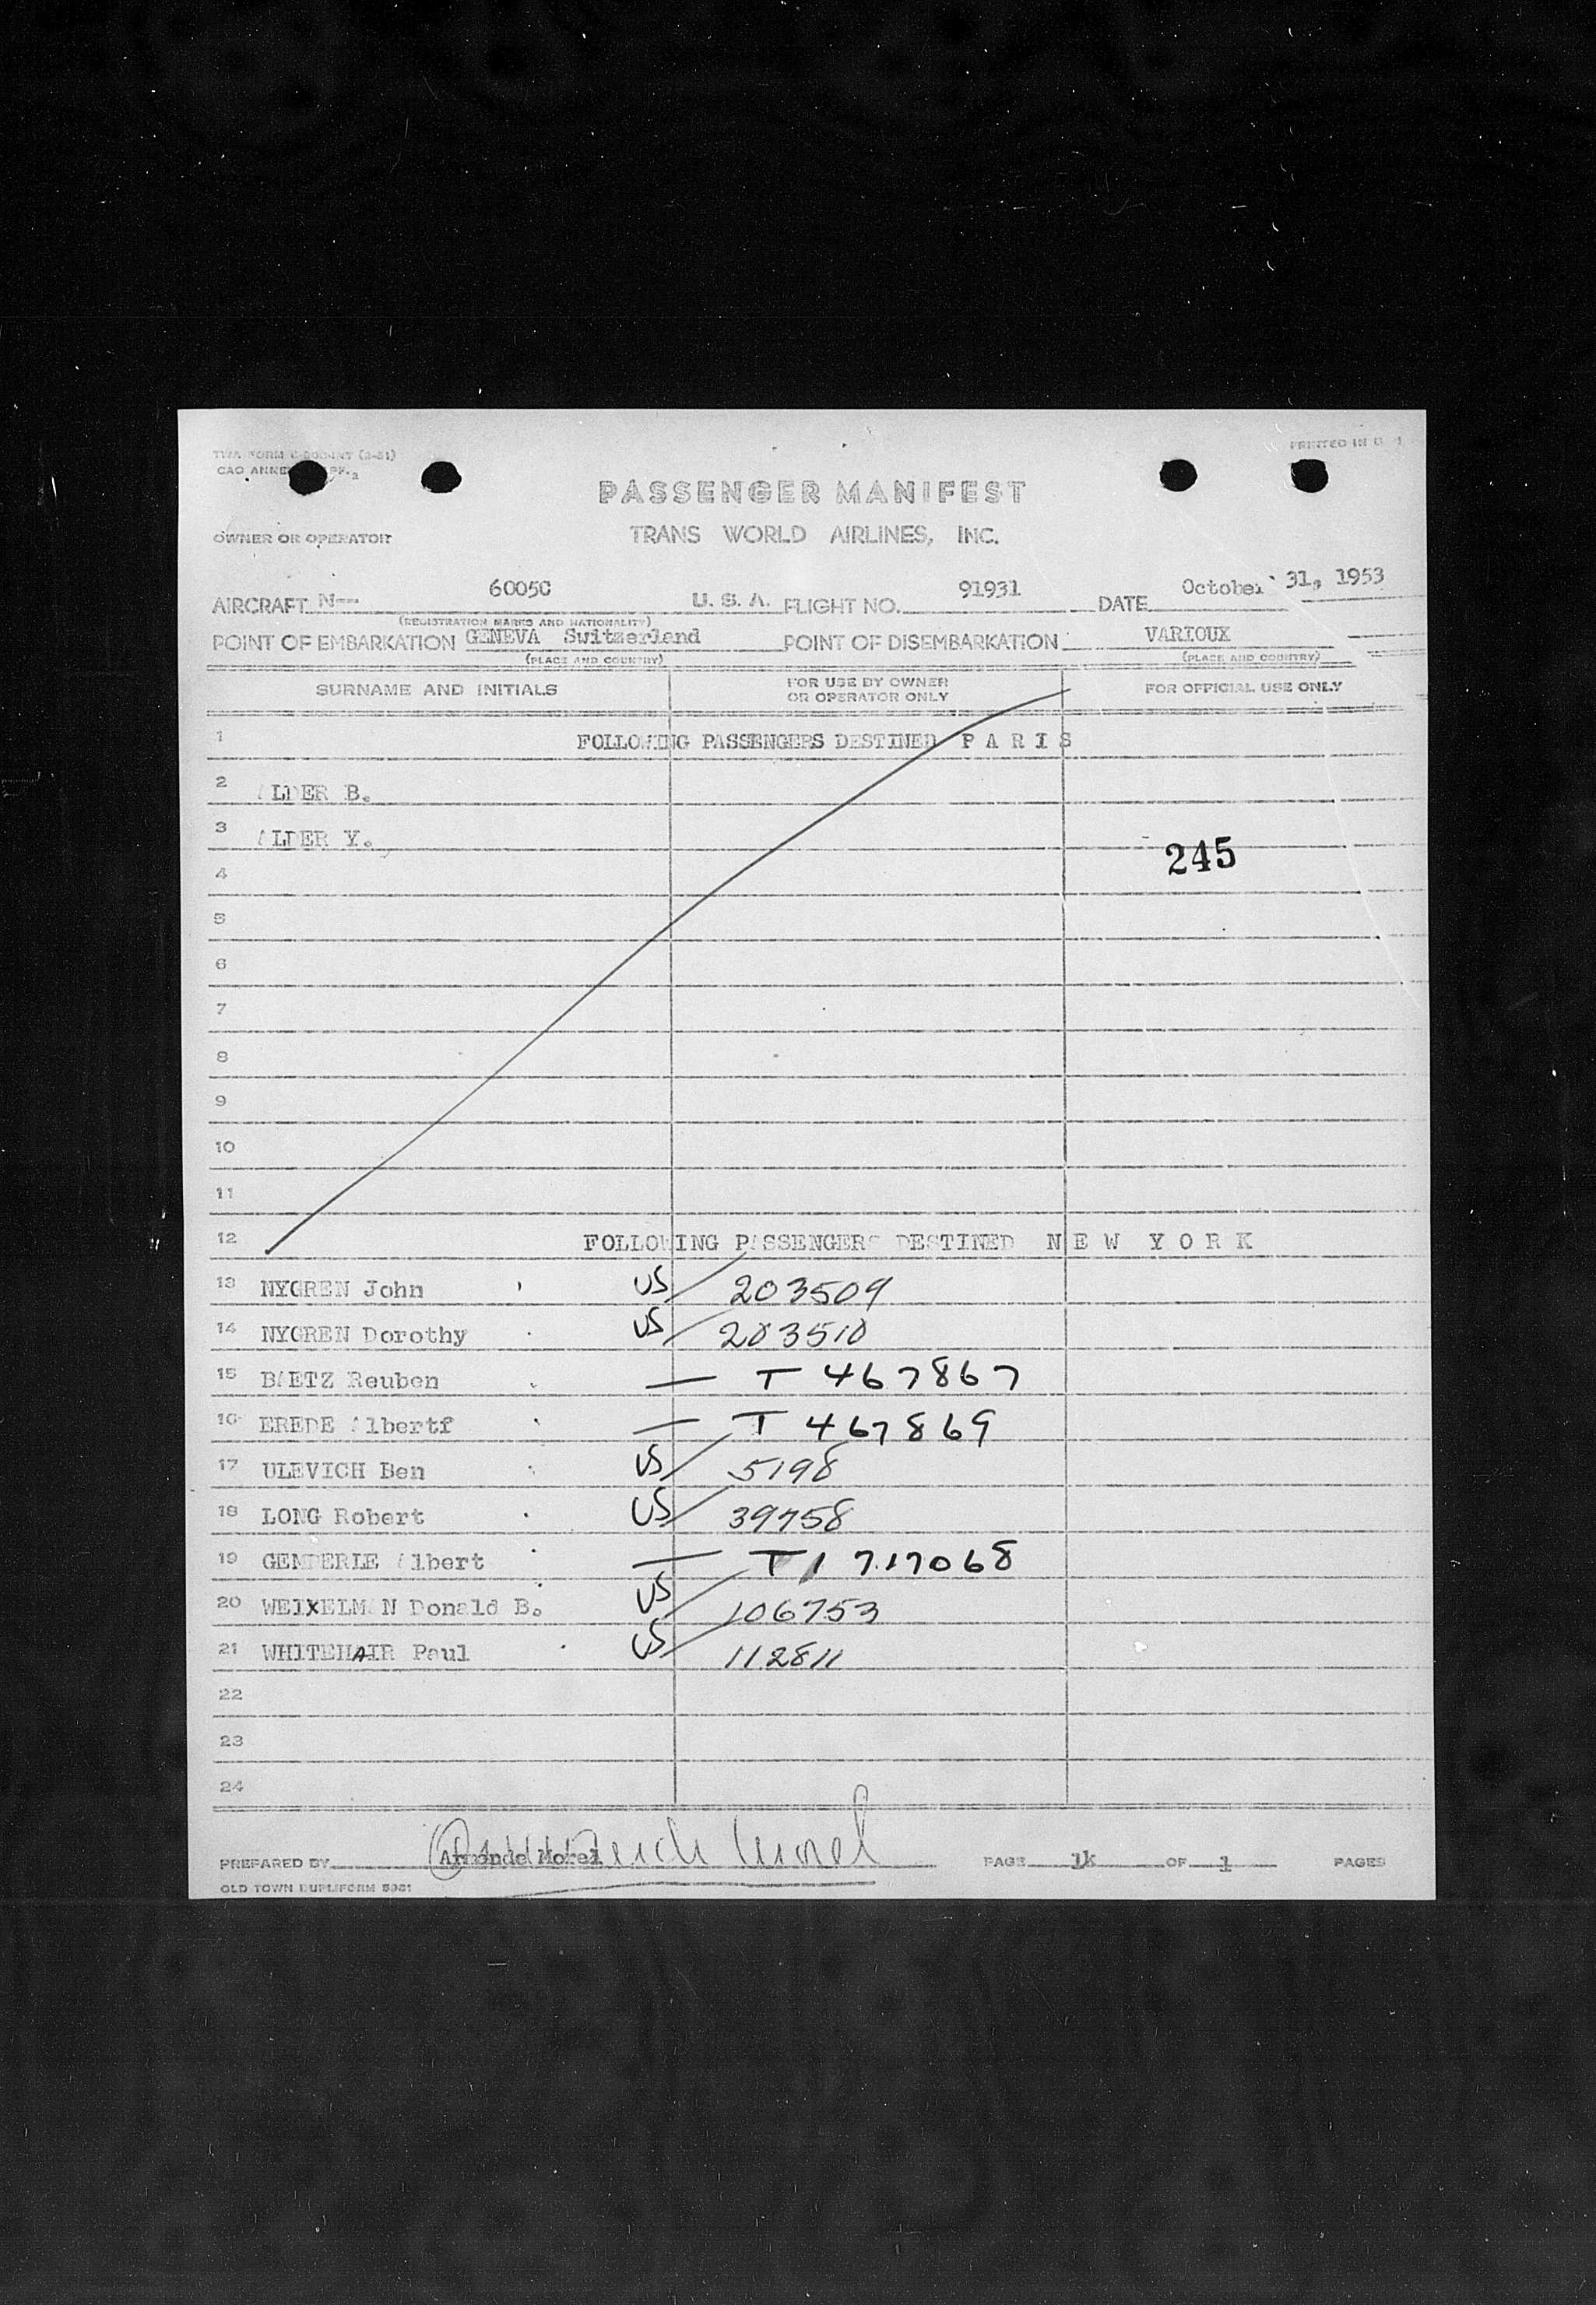 TWA FORM (2-51)
PRINTED IN U
PASSENGER MANIFEST
OWNER OR OPERATOR TRANS WORLD AIRLINES, INC.
AIRCRAFT N-- 6005C U. S. A. FLIGHT NO. 91931 DATE October 31, 1953
(REGISTRATION MARKS AND NATIONALITY)
POINT OF EMBARKATION GENEVA Switzerland POINT OF DISEMBARKATION VARIOUX
(PLACE AND COUNTRY) (PLACE AND COUNTRY)
SURNAME AND INITIALS FOR USE BY OWNER OR OPERATOR ONLY FOR OFFICIAL USE ONLY
1 FOLLOWING PASSENGERS DESTINED P A R I S
2 ALDER B.
3 ALDER Y.
245
4
5
6
7
8
9
10
11
12 FOLLOWING PASSENGERS DESTINED N E W Y O R K
13 NYGREN John US 203509
14 NYGREN Dorothy US 203510
15 BAETZ Reuben — T 467867
16 EREDE Albertf — T 467869
17 ULEVICH Ben US 5198
18 LONG Robert US 39758
19 GEMPERLE Albert — T 1 717068
20 WEIXELMAN Donald B. US 106753
21 WHITEHAIR Paul US 112811
22
23
24
PREPARED BY Armande Morel PAGE 1k OF 1 PAGES
OLD TOWN DUPLIFORM